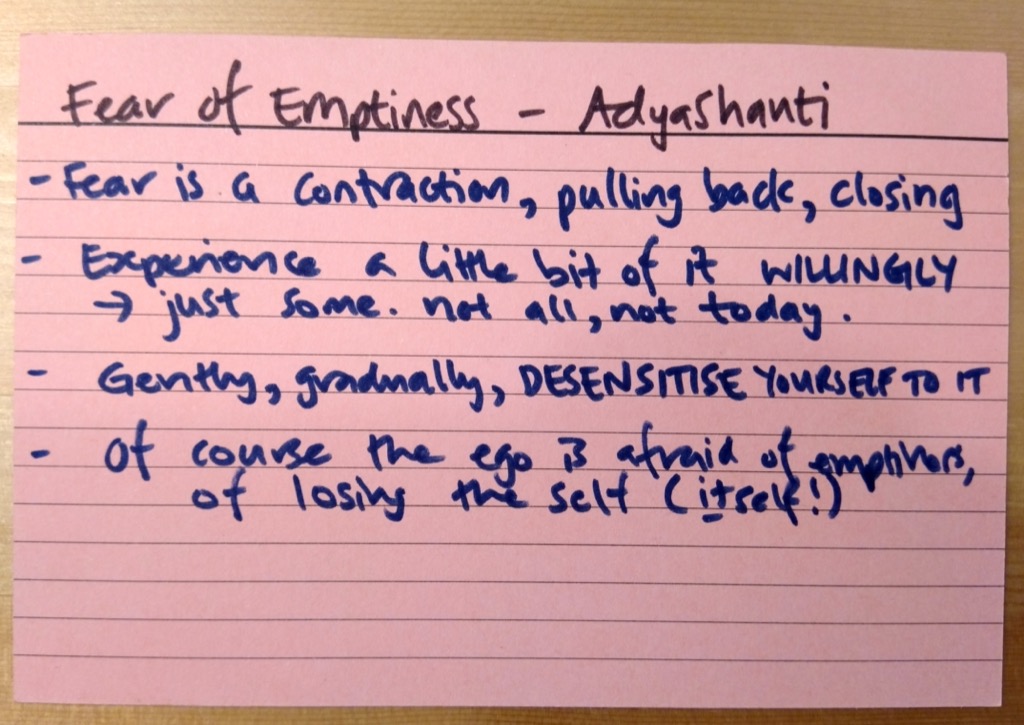 Fear of Emptiness - Adyashanti
- Fear is a contraction, pulling back, closing
- Experience a little bit of it WILLINGLY
→ just some. not all, not today.
- Gently, gradually, DESENSITISE YOURSELF TO IT
- Of course the ego is afraid of emptiness,
of losing the self (itself!)